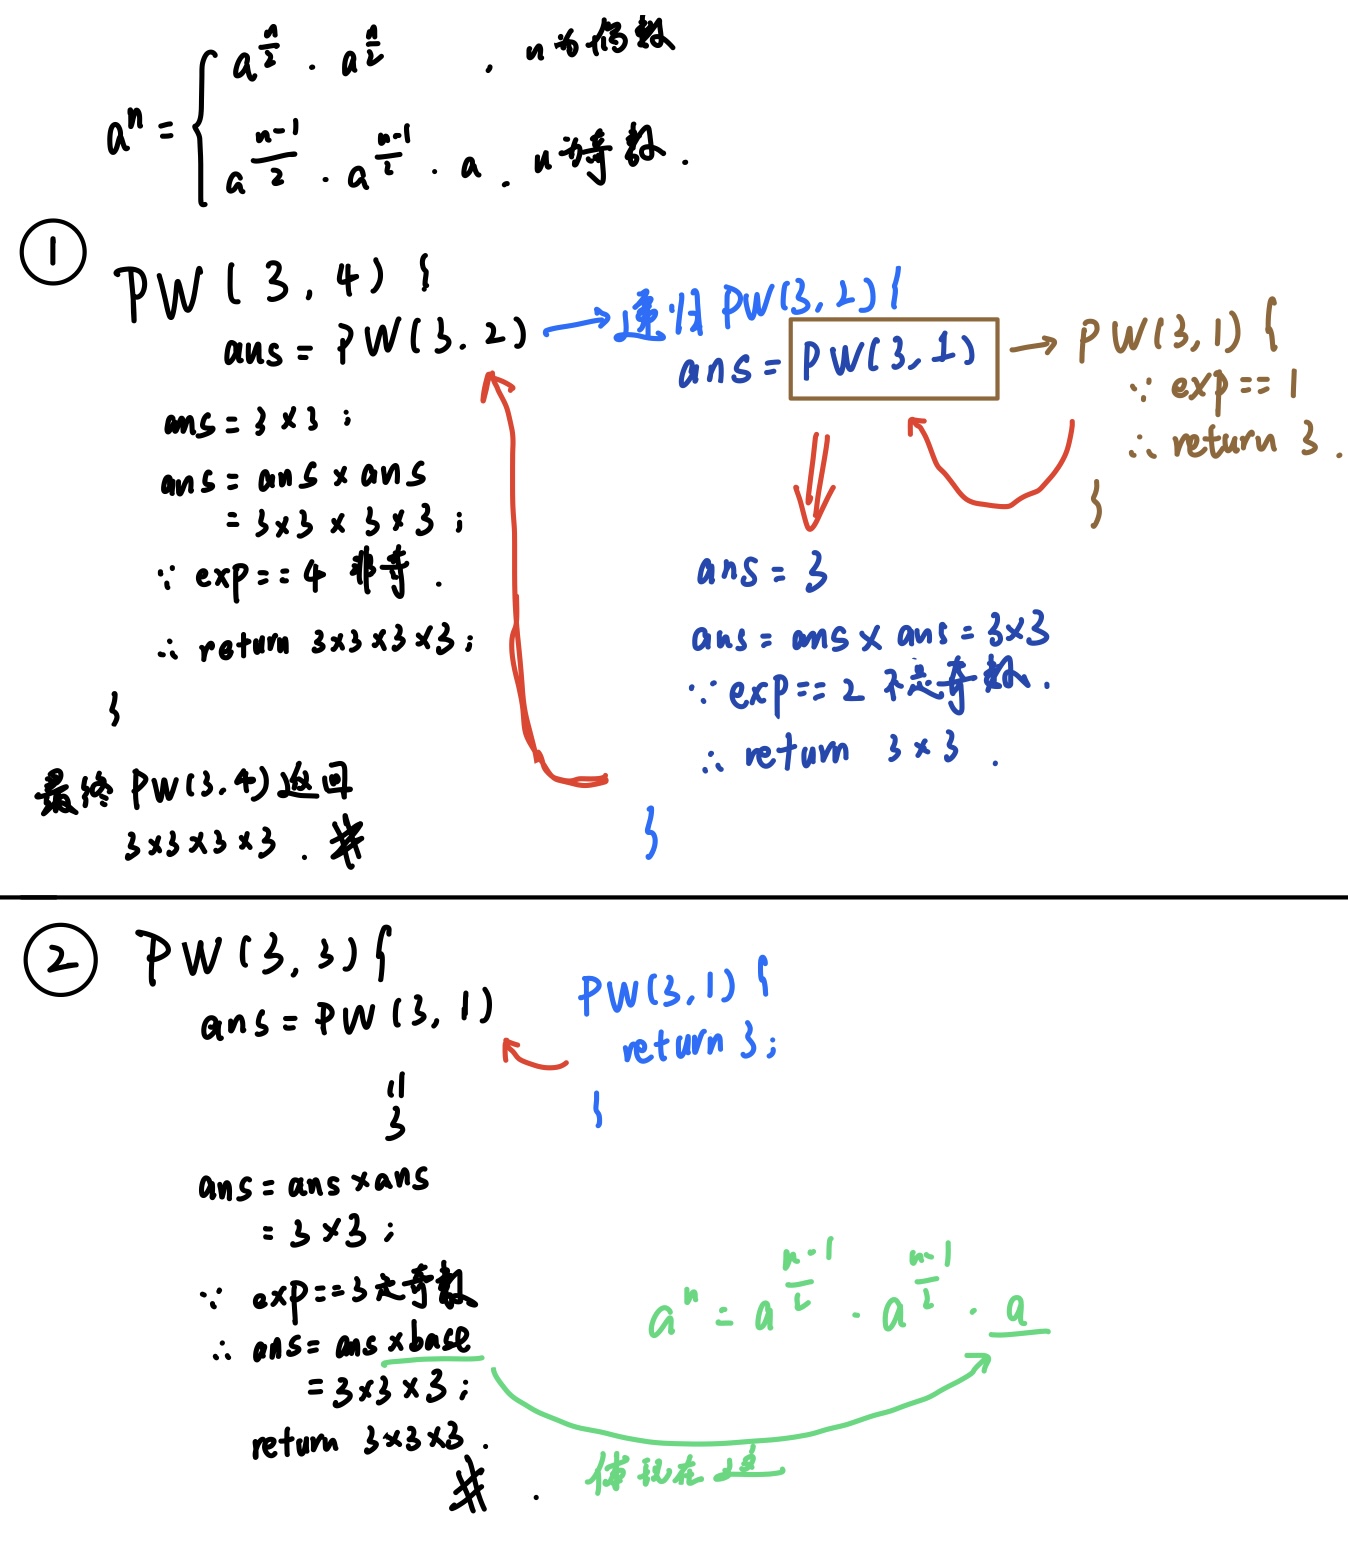 aⁿ = { a^(n/2) · a^(n/2) . n为偶数
a^((n-1)/2) · a^((n-1)/2) · a . n为奇数.
①
PW(3,4) {
ans = PW(3.2)
ans = 3×3;
ans = ans × ans
= 3×3 × 3×3;
∵ exp==4 非奇.
∴ return 3×3×3×3;
}
最终 PW(3.4)返回
3×3×3×3. #
→ 递归 PW(3,2) {
ans = PW(3,1)
ans = 3
ans = ans × ans = 3×3
∵ exp==2 不是奇数.
∴ return 3×3.
}
→ PW(3,1) {
∵ exp==1
∴ return 3.
}
② PW(3,3) {
ans = PW(3,1)
=
3
PW(3,1) {
return 3;
}
ans = ans × ans
= 3×3;
∵ exp==3 是奇数
∴ ans = ans × base
= 3×3×3;
return 3×3×3.
# .
aⁿ = a^((n-1)/2) · a^((n-1)/2) · a
体现在这